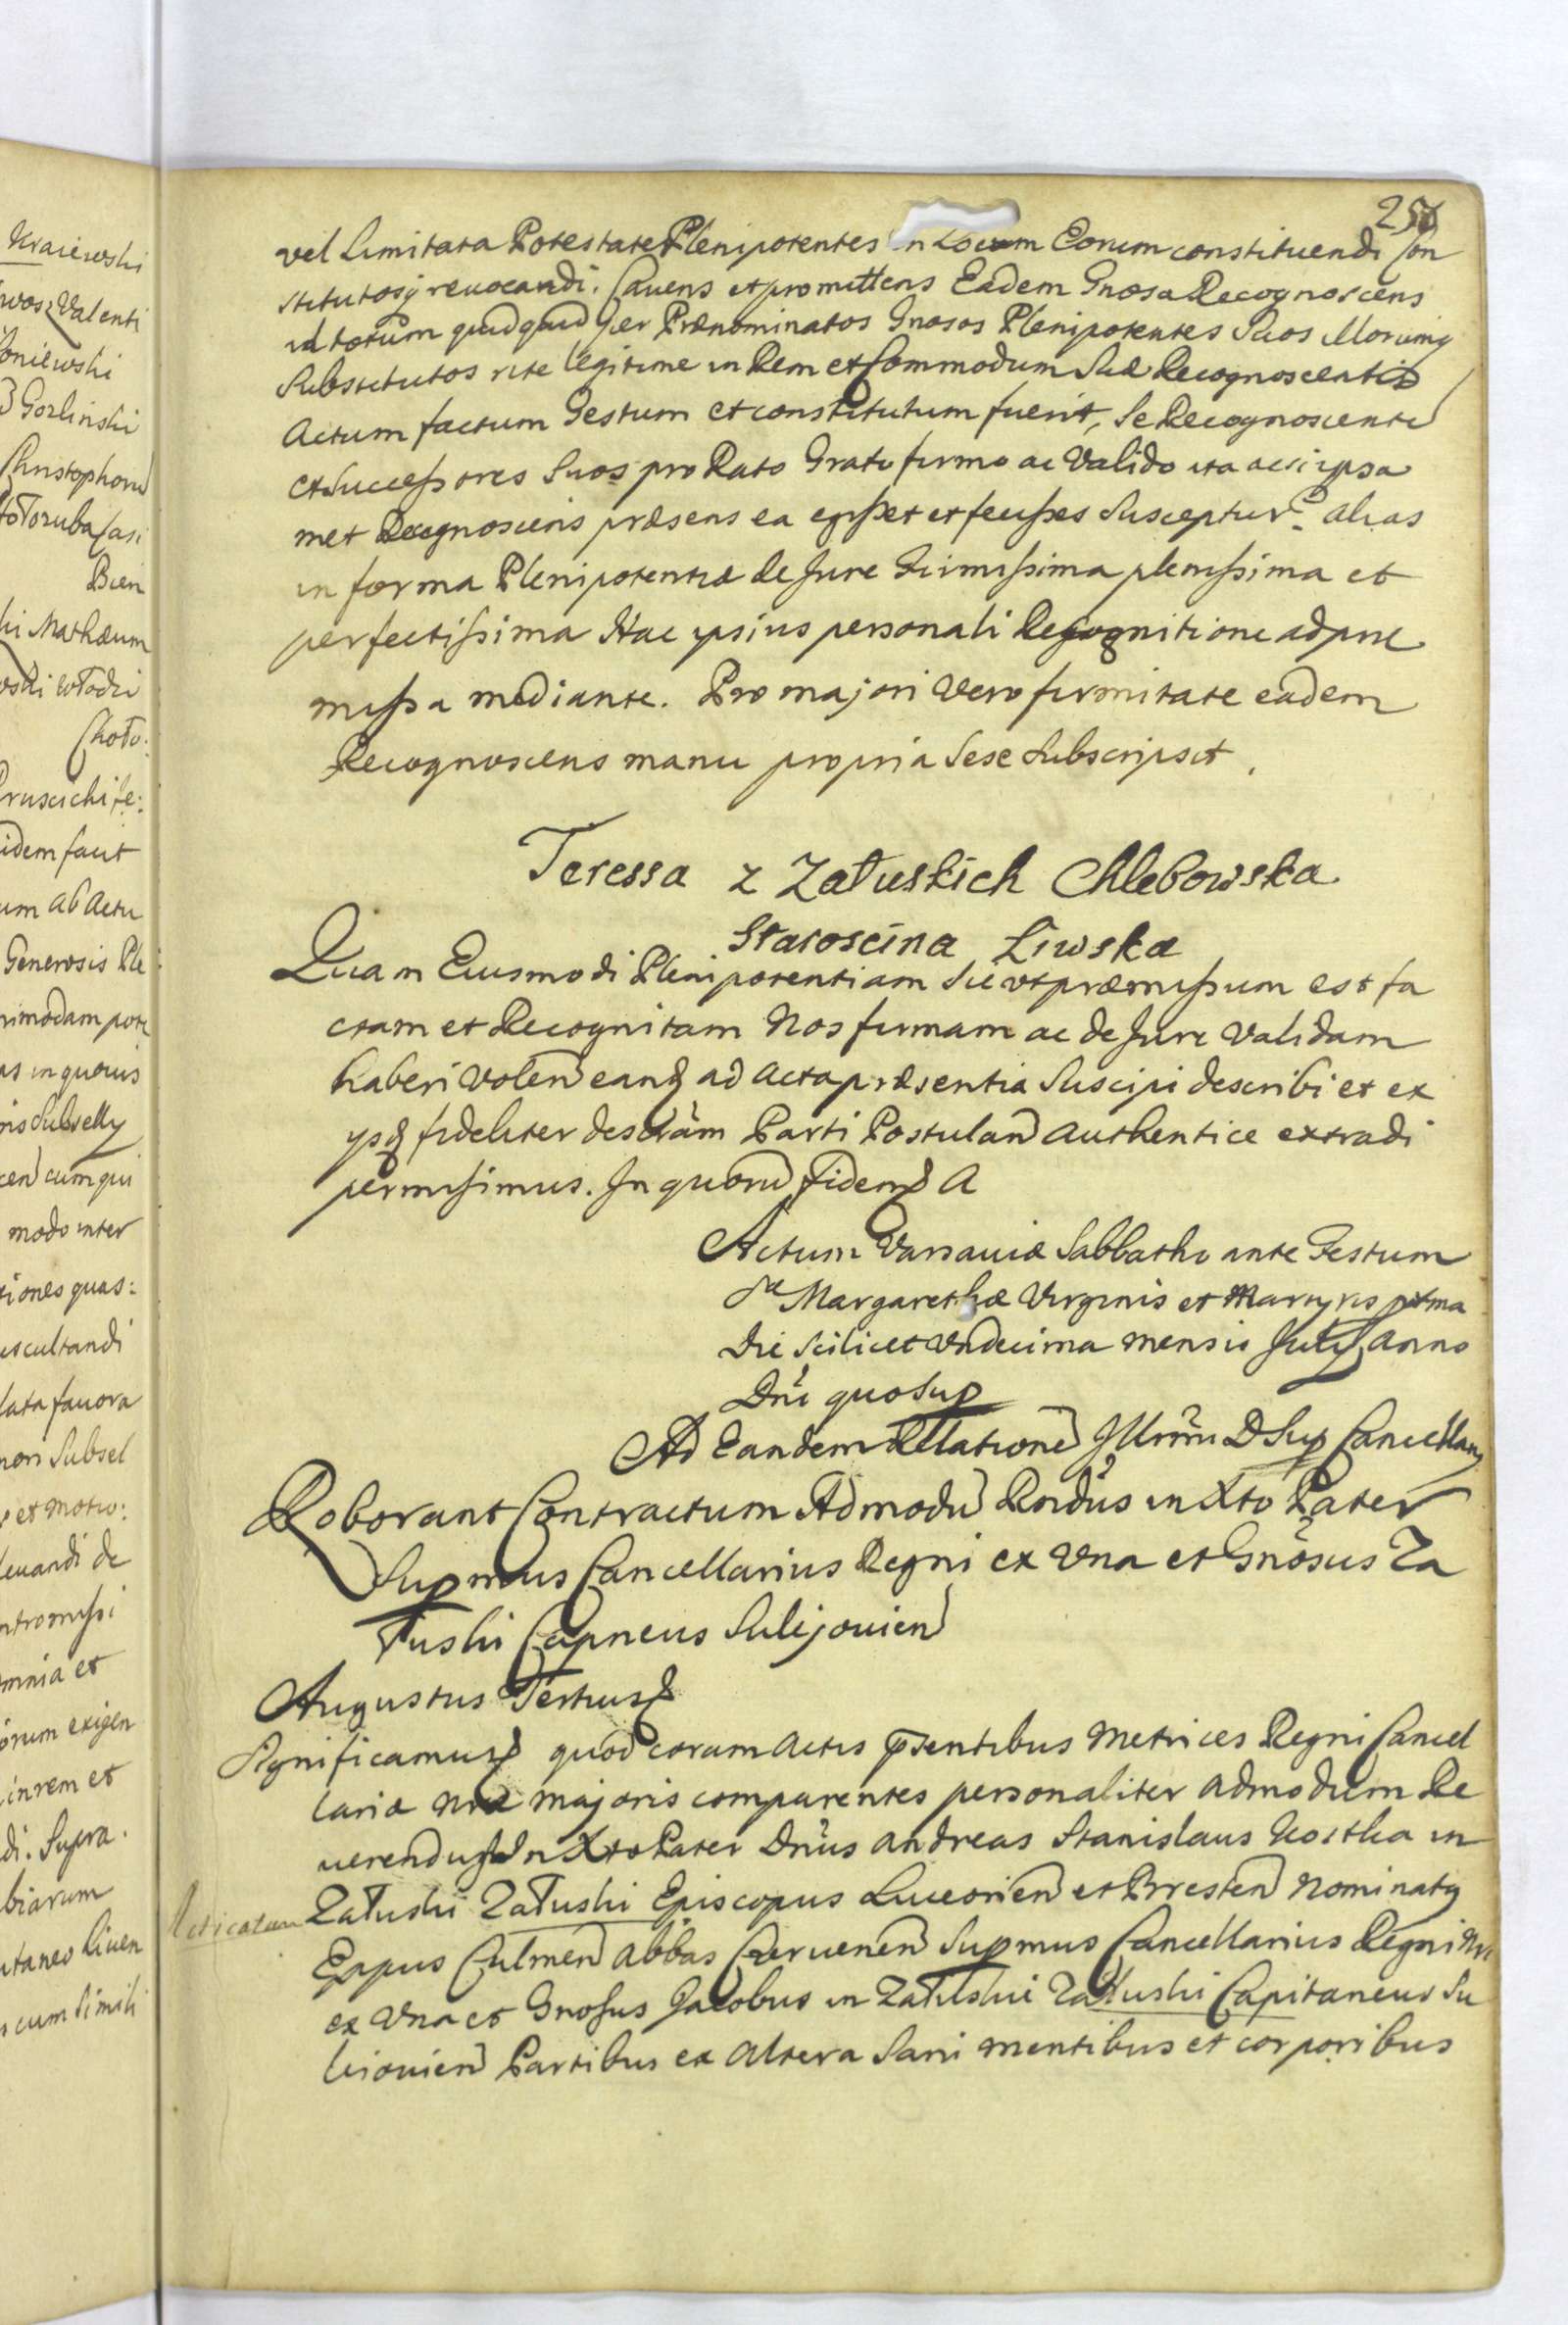 Kraiewski
Valenti
oniewski
Gorlinski
Christophoru
Bien
hi Mathæum
Choło:
Pruscichi
idem facit
um ab Actu
Generosis Ple
nimodam pote
as in quovis
ris Subselly
cen cum qui
modo inter
tiones quas:
escultandi
lata favora
nori Subsel
et motio:
levandi de
ntromissi
omnia et
orum exigen
in rem et
di. Supra.
biarum
taneo Liven
cum simili
25
vel Limitata Potestate Plenipotentes in Locum Eorum constituendi Con
stitutosq revocandi. Cavens et promittens Eadem Gnosa Recognoscens
id totum quidquid per Prænominatos Gnosos Plenipotentes Suos Illorumq
Substitutos rite legitime in Rem et Commodum Suæ Recognoscentis
Actum factum Gestum et constitutum fuerit, Se Recognoscente
et Successores Suos pro Rato Grato firmo ac Valido ita ac si ipsa
met Recognoscens præsens ea egisset et fecisset Susceptur. alias
in forma Plenipotentiæ de Jure firmissima plenissima et
perfectissima Hac ipsius personali Recognitione ad præ
missa mediante. Pro majori Vero firmitate eadem
Recognoscens manu propria Sese Subscripsit.
Teressa z Załuskich Chlebowska
Staroscina Liwska
Quam Eiusmodi Plenipotentiam Sic vt præmissum est fa
ctam et Recognitam Nos firmam ac de Jure Validam
haberi Volen eanq ad Acta præsentia Suscipi describi et ex
ysq fideliter descram Parti Postulan authentice extradi
permisimus. In quoru Fidem A
Actum Varsaviæ Sabbatho ante Festum
Sæ Margarethæ Virginis et Martyris pxtma
Die Scilicet Vndecima mensis July Anno
Dni quo Sup
Ad Eandem Rellatione Illrmi D Sup Cancellary
Roborant Contractum Admodu Rndus in Xto Pater
Supmus Cancellarius Regni ex Vna et Gnosus Za
łuski Capneus Sulejovien
Augustus Tertius
Significamus quod coram Actis psentibus Metrices Regni Cancel
lariæ Nræ majoris comparentes personaliter Admodum Re
verendus In Xto Pater Dnus Andreas Stanislaus Kostka in
Załuskie Załuski Episcopus Luceorien et Bresten Nominatq
Eppus Culmen Abbas Czervenen Supmus Cancellarius Regni Nri
ex Vna et Gnosus Jacobus in Załuskie Załuski Capitaneus Su
leiovien Partibus ex Altera Sani mentibus et corporibus